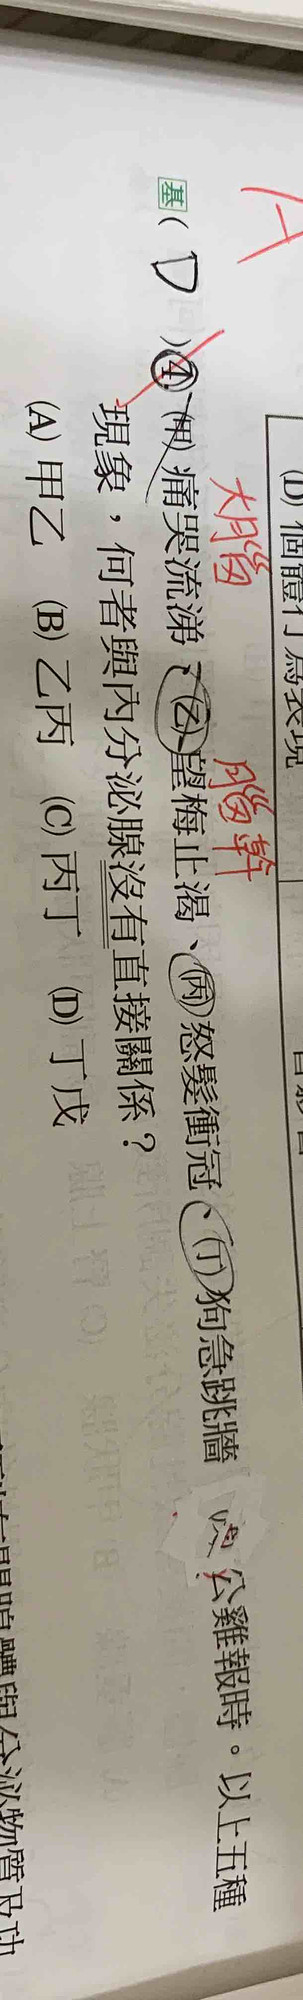 A
(D) 個體行為表現
大腦 腦幹
基( D )④.(甲)痛哭流涕、(乙)望梅止渴、(丙)怒髮衝冠、(丁)狗急跳牆 戊 公雞報時。以上五種
現象,何者與內分泌腺沒有直接關係?
(A) 甲乙 (B) 乙丙 (C) 丙丁 (D) 丁戊